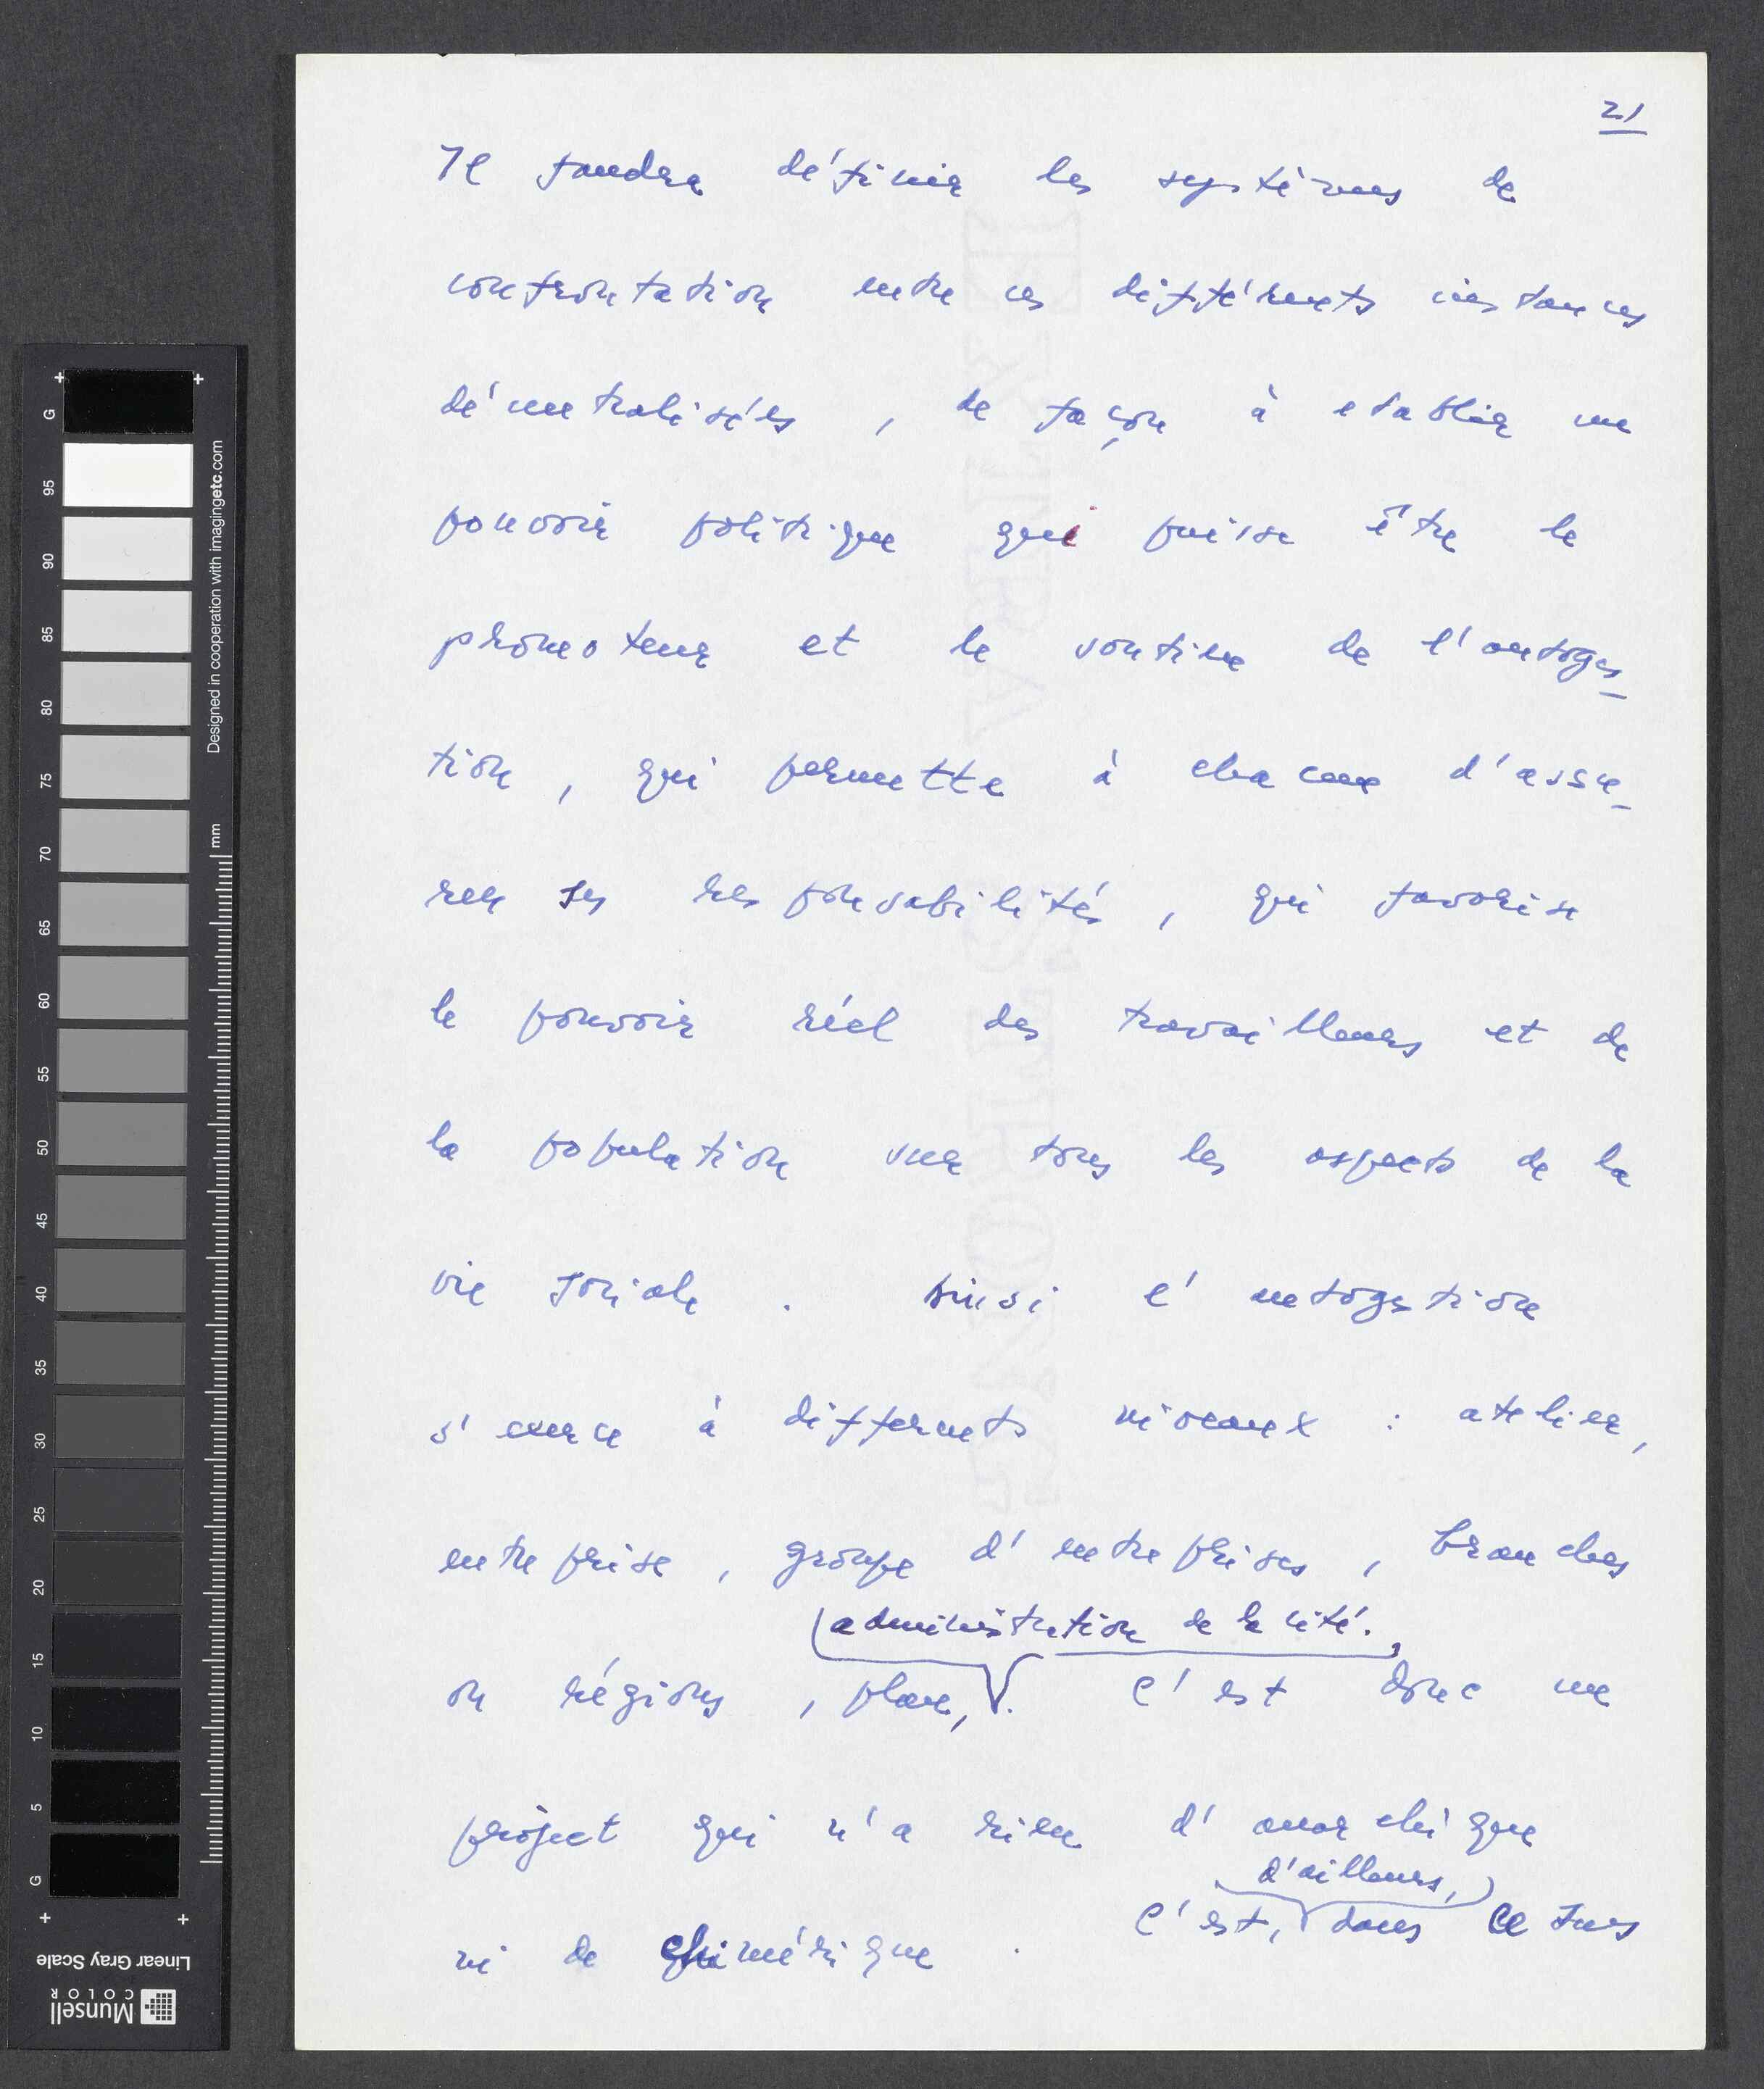 21
Il faudra définir les systèmes de
confrontation entre ces différents instances
décentralisées, de façon à etablir un
pouvoir politique qui puisse être le
promoteur et le soutien de l'autoges_
tion, qui permette à chacun d'assu_
rer ses responsabilités, qui favorise
le pouvoir réel des travailleurs et de
la population sur tous les aspects de la
vie sociale. Ainsi l'autogestion
s'exerce à differents niveaux : atelier,
entreprise, groupe d'entreprises, branches
administration de la cité.
ou régions, plan, . C'est donc un
project qui n'a rien d'anarchique
d'ailleurs,
ni de chimérique. C'est, dans ce sens
G 95 90 85 80 75 70 65 60 55 50 45 40 35 30 25 20 15 10 5 G
Designed in cooperation with imagingetc.com
mm
Linear Gray Scale
Munsell
COLOR